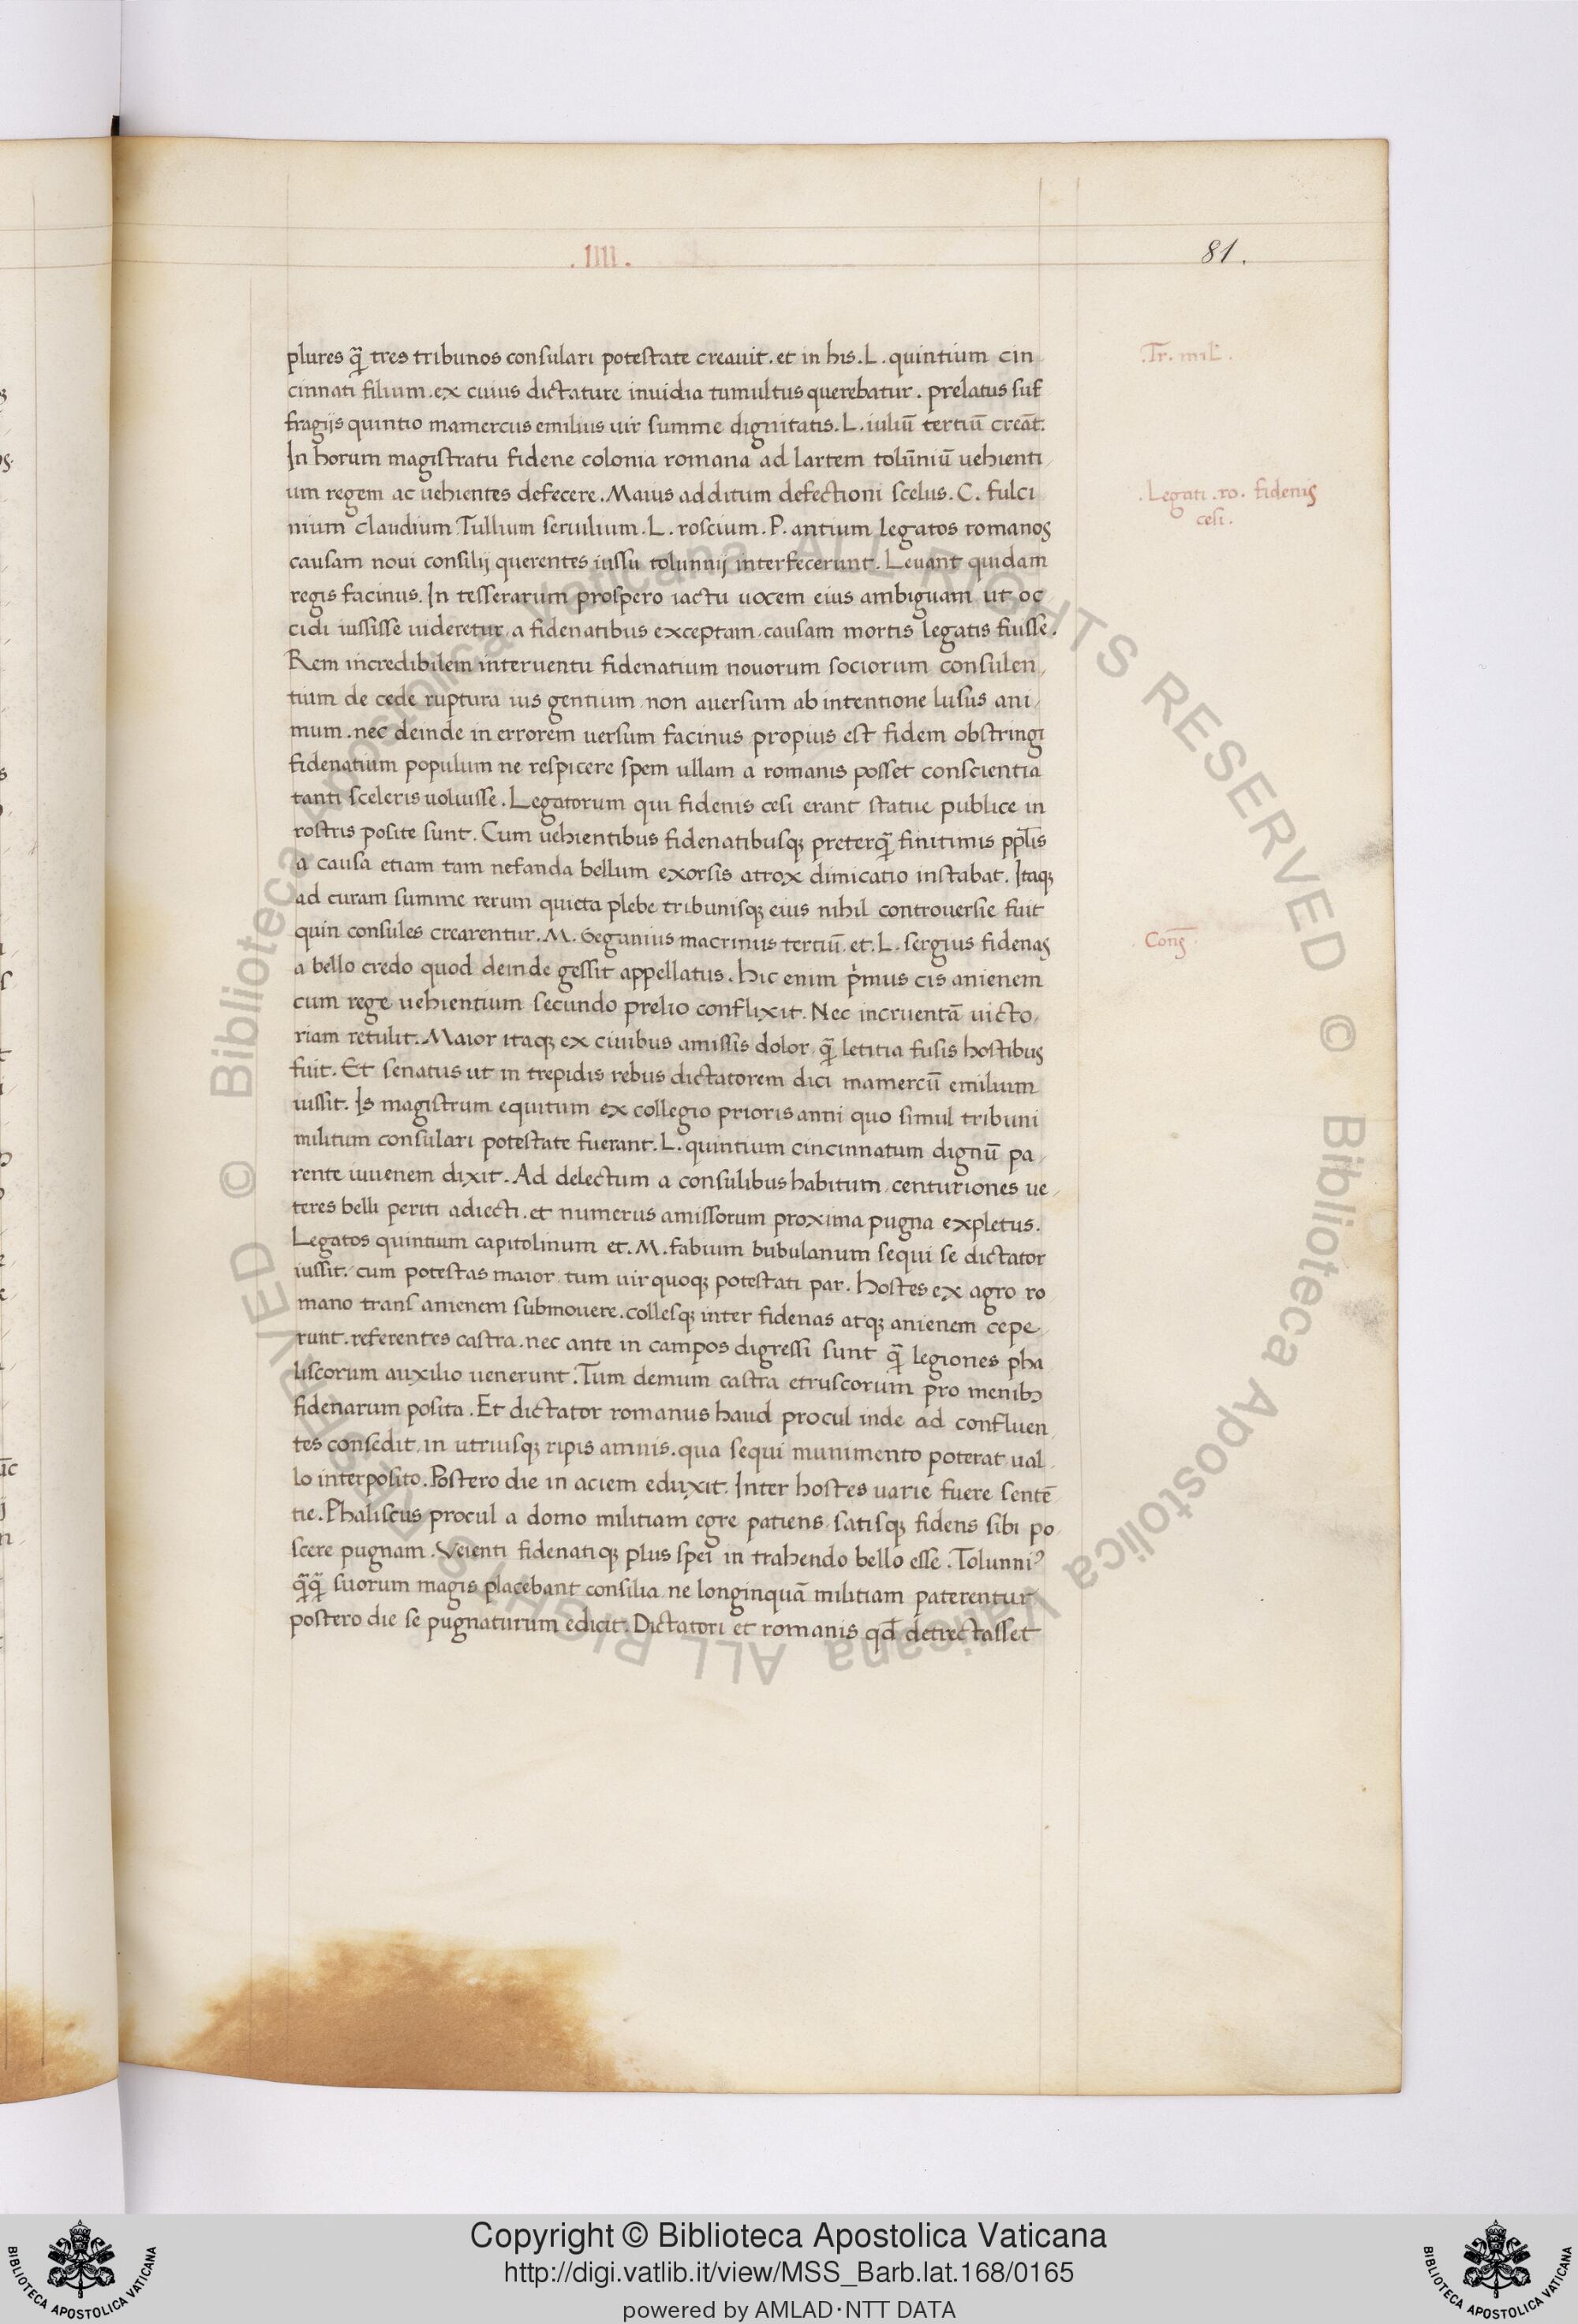 .IIII.
81.
plures q̃ tres tribunos consulari potestate creauit. et in his. L. quintium cin
.Tr. mil̃.
cinnati filium. ex cuius dictature inuidia tumultus querebatur. prelatus suf
fragijs quintio mamercus emilius uir summe dignitatis. L. iuliũ tertiũ creãt.
In horum magistratu fidene colonia romana ad lartem tolũniũ uehienti
um regem ac uehientes defecere. Maius additum defectioni scelus. C. fulci
.Legati .ro. fidenis
cesi.
nium claudium Tullium seruilium. L. roscium. P. antium legatos romanos
causam noui consilij querentes iussu tolunnij interfecerunt. Leuant quidam
regis facinus. In tesserarum prospero iactu uocem eius ambiguam ut oc
cidi iussisse uideretur a fidenatibus exceptam causam mortis legatis fuisse.
Rem incredibilem interuentu fidenatium nouorum sociorum consulen
tium de cede ruptura ius gentium non auersum ab intentione lusus ani
mum. nec deinde in errorem uersum facinus propius est fidem obstringi
fidenatium populum ne respicere spem ullam a romanis posset conscientia
tanti sceleris uoluisse. Legatorum qui fidenis cesi erant statue publice in
rostris posite sunt. Cum uehientibus fidenatibusq; preterq̃ finitimis ppl̃is
a causa etiam tam nefanda bellum exorsis atrox dimicatio instabat. Itaq;
ad curam summe rerum quieta plebe tribunisq; eius nihil controuersie fuit
quin consules crearentur. M. Geganius macrinus tertiũ. et. L. sergius fidenas
Cons̃
a bello credo quod deinde gessit appellatus. hic enim p̾mus cis anienem
cum rege uehientium secundo prelio conflixit. Nec incruentã uicto
riam retulit. Maior itaq; ex ciuibus amissis dolor q̃ letitia fusis hostibus
fuit. Et senatus ut in trepidis rebus dictatorem dici mamercũ emilium
iussit. Is magistrum equitum ex collegio prioris anni quo simul tribuni
militum consulari potestate fuerant. L. quintium cincinnatum dignũ pa
rente iuuenem dixit. Ad delectum a consulibus habitum centuriones ue
teres belli periti adiecti. et numerus amissorum proxima pugna expletus.
Legatos quintium capitolinum et. M. fabium bubulanum sequi se dictator
iussit. cum potestas maior tum uir quoq; potestati par. hostes ex agro ro
mano trans anienem submouere. collesq; inter fidenas atq; anienem cepe
runt. referentes castra. nec ante in campos digressi sunt q̃ legiones pha
liscorum auxilio uenerunt. Tum demum castra etruscorum pro menib;
fidenarum posita. Et dictator romanus haud procul inde ad confluen
tes consedit in utriusq; ripis amnis. qua sequi munimento poterat ual
lo interposito. Postero die in aciem eduxit. Inter hostes uarie fuere sentẽ
tie. Phaliscus procul a domo militiam egre patiens satisq; fidens sibi po
scere pugnam. Veienti fidenatiq; plus spei in trahendo bello esse. Tolunniꝰ
q̃q̃ suorum magis placebant consilia ne longinquã militiam paterentur
postero die se pugnaturum edicit. Dictatori et romanis qd̃ detrectasset
© Biblioteca Apostolica Vaticana ALL RIGHTS RESERVED © Biblioteca Apostolica Vaticana ALL RIGHTS RESERVED
Copyright © Biblioteca Apostolica Vaticana
http://digi.vatlib.it/view/MSS_Barb.lat.168/0165
powered by AMLAD·NTT DATA
BIBLIOTECA APOSTOLICA VATICANA
BIBLIOTECA APOSTOLICA VATICANA